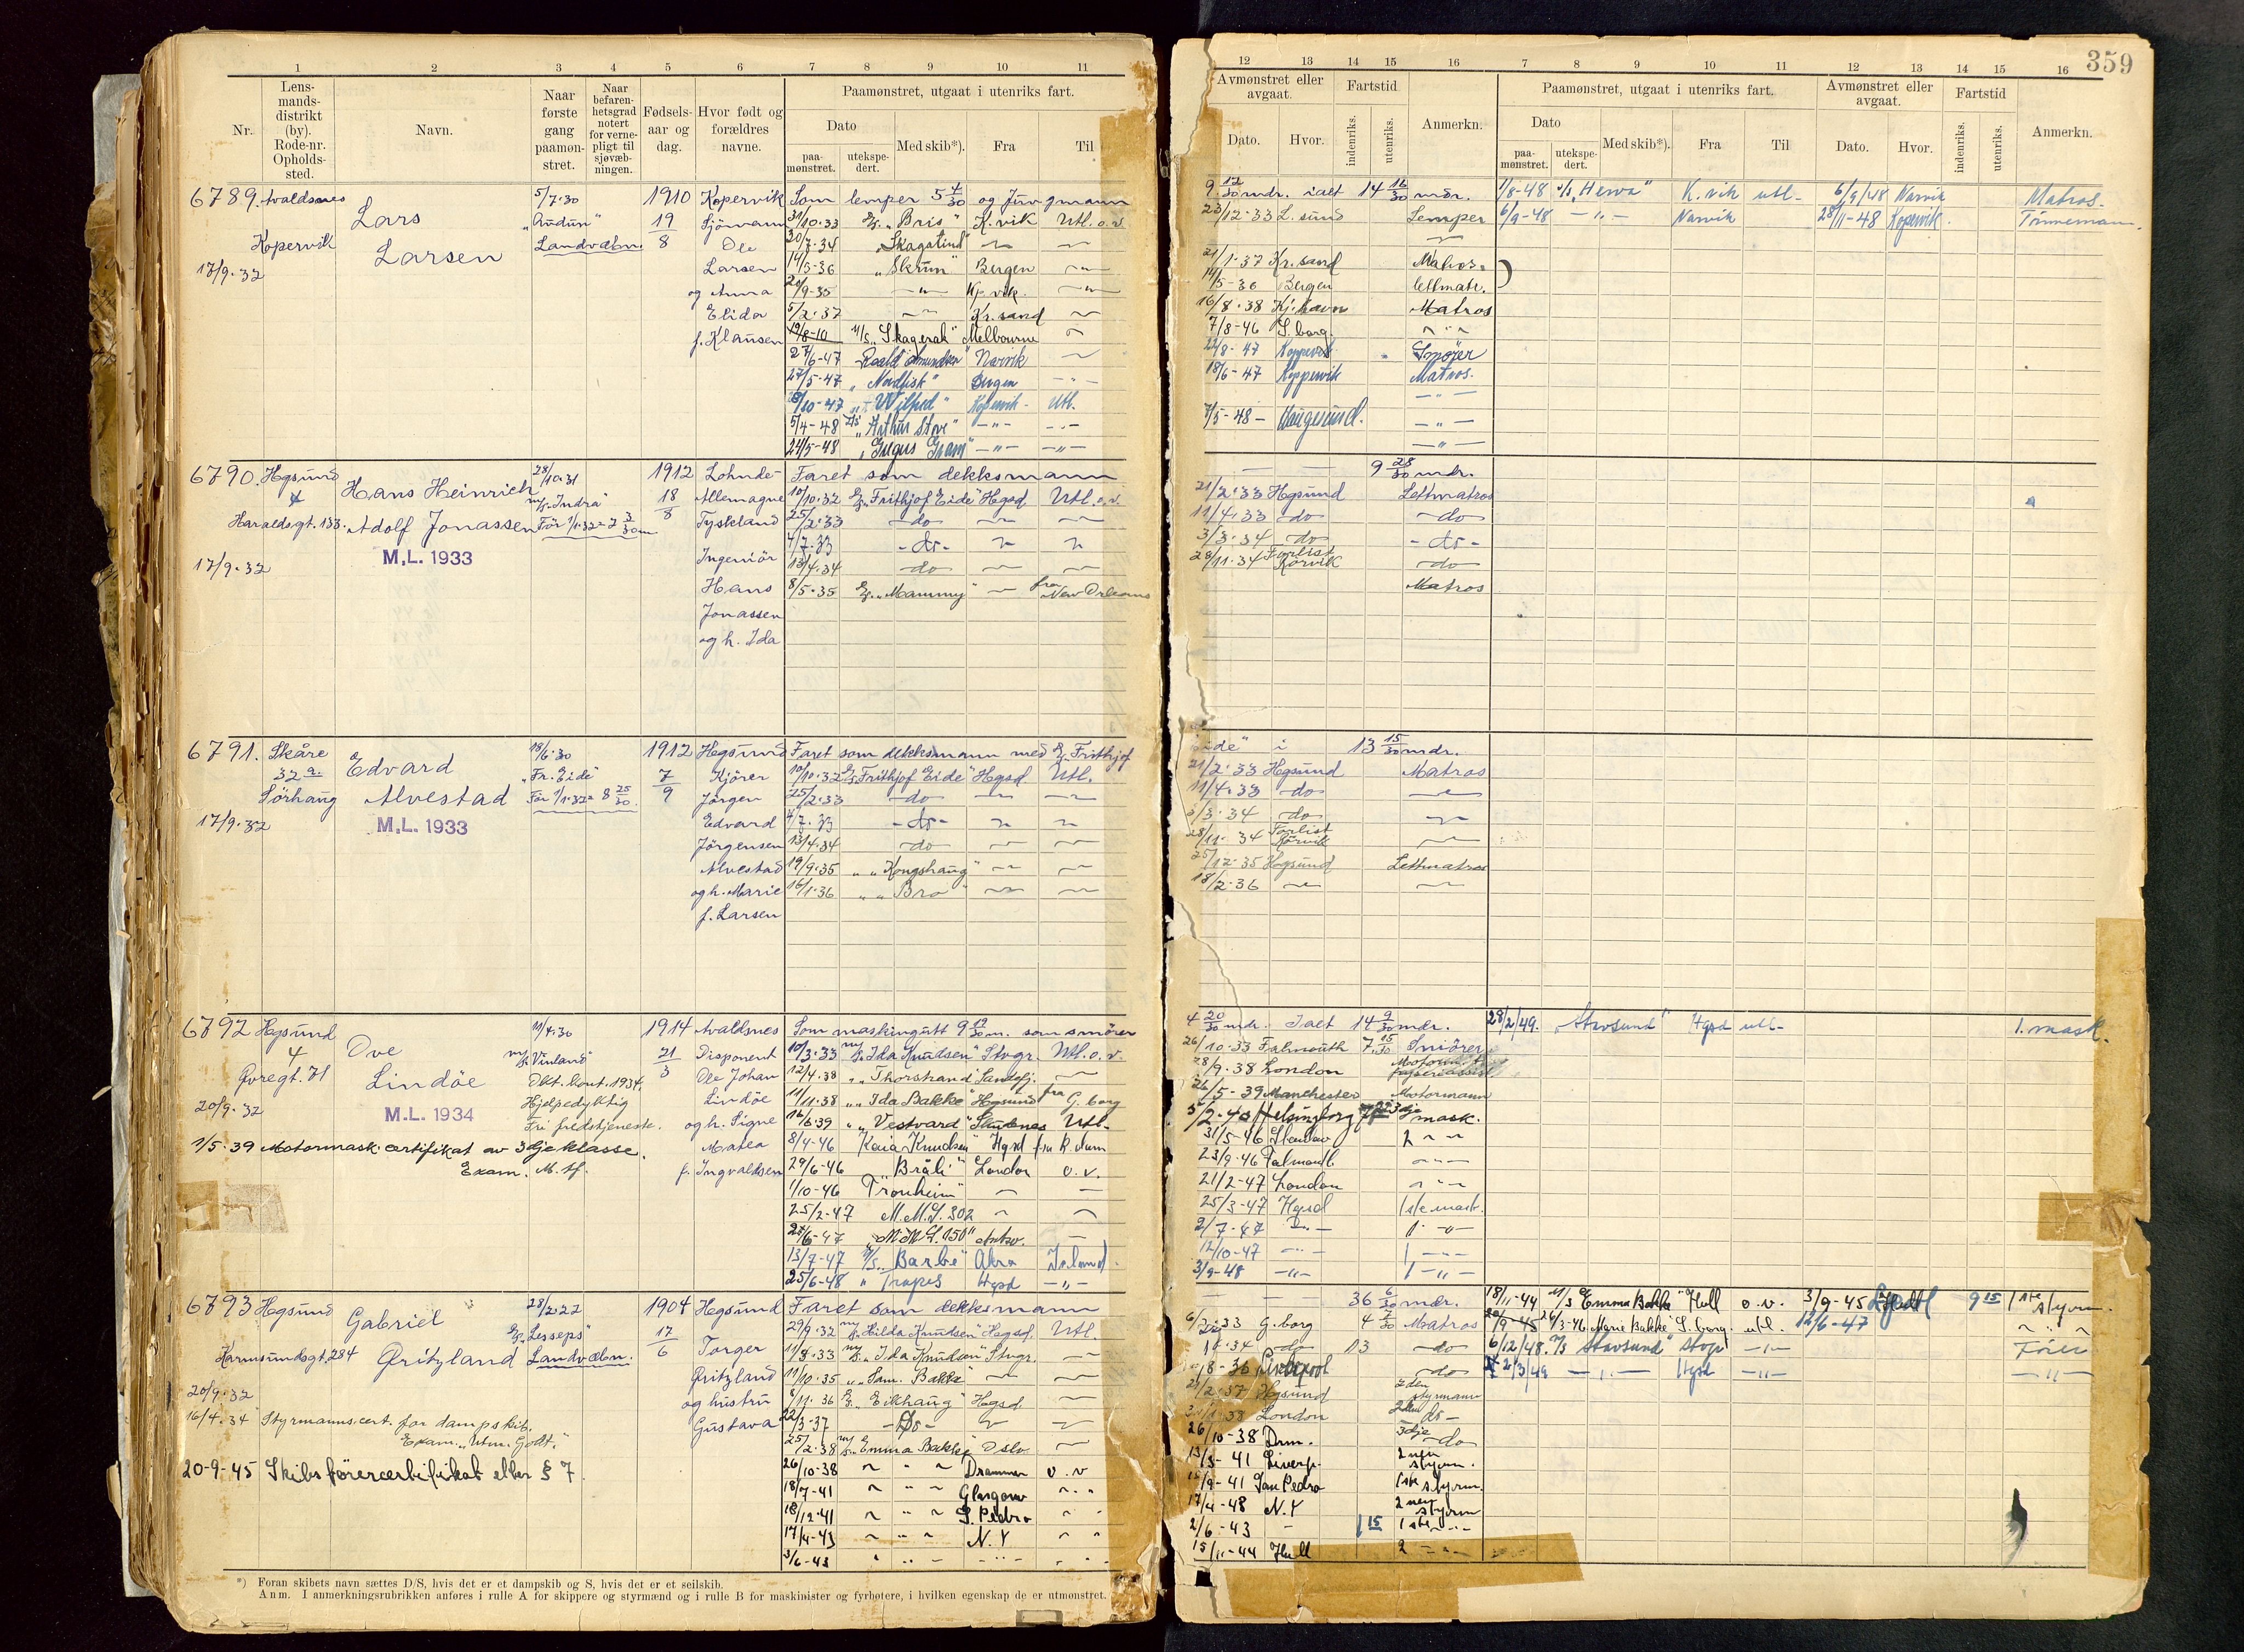 359
1 2 3 4 5 6 7 8 9 10 11
Nr.
Lens-
mands-
distrikt
(by).
Rode-nr.
Opholds-
sted.
Navn.
Naar
første
gang
paamøn-
stret.
Naar
befaren-
hetsgrad
notert
for verne-
pligt til
sjøvæb-
ningen.
Fødsels-
aar og
dag.
Hvor født og
forældres
navne.
Paamønstret, utgaat i utenriks fart.
Dato
paa-
mønstret.
utekspe-
dert.
Med skib*).
Fra
Til
12 13 14 15 16 7 8 9 10 11 12 13 14 15 16
Avmønstret eller
avgaat.
Dato. Hvor.
Fartstid
indenriks. utenriks.
Anmerkn.
Paamønstret, utgaat i utenriks fart.
Dato
paa-
mønstret.
utekspe-
dert.
Med skib*).
Fra
Til
Avmønstret eller
avgaat.
Dato. Hvor.
Fartstid
indenriks. utenriks.
Anmerkn.
6789. Avaldsnes
Kopervik
17/9.32
Lars
Larsen
5/7.30
"Audun"
Landvæbn.
1910
19/8
Kopervik
Sjömann
Ole
Larsen
og Anna
Elida
f. Klausen
Som lemper 5 4/30 og Jungmann
31/10.33 "Bris" K.vik Utl. o.v.
30/7.34 "Skagatind"
14/5-36 "Skrun" Bergen
20/9-35 Kp.vik
5/2.37 Kr.sand
19/8-10 M/S "Skagerak" Melbourne
27/6-47 Roald Amundsen Narvik
27/5-47 "Nordfisk" Bergen
8/10-47 "Wilfred" Kopervik Utl.
5/4-48
24/5-48 "Gregus Gram"
9 12/30 mdr. ialt 14 16/30 mdr.
23/12.33 L.sund Lemper
21/1.37 Kr.sand Matros
14/5-36 Bergen lettmatr.
16/8.38 Kj.havn Matros
7/8-46 S.borg
22/8-47 Smører
18/6-47 Koppervik Matros.
7/5-48 - Haugesund.
1/8-48 Narvik K.vik utl-
6/9/48 Narvik Matros-
6/9-48 Narvik
28/11-48 Kopervik
6790. Hgsund
Haraldsgt. 133.
17/9.32
Hans Heinrich
Adolf Jonassen
M.L. 1933
28/10.31
M/S "Indra"
Før 1/1.32 = 7 3/30 m
1912
18/8
Lohnde-
Allemagne
Tyskland
Ingeniör
Hans
Jonassen
og h. Ida
Faret som dekksmann
10/10.32 "Frithjof Eide" Hgsd. Utl. o.v.
25/2.33 do
4/7.33 - do -
13/4.34 do
8/5.35 "Mammy" fra New Orleans
9 28/30 mdr.
21/2.33 Hgsund Lettmatros
11/4.33 do do
3/3.34 do - do -
28/11.34 Forlist Rörvik do
Matros
6791. Skåre
32 a.
Sörhaug
17/9.32
Edvard
Alvestad
M.L. 1933
18/6.30
"Fr. Eide"
Før 1/1.32 = 8 25/30
1912
7/9
Hgsund
Kjörer
Jörgen
Edvard
Jörgensen
Alvestad
og h. Marie
f. Larsen
Faret som dekksmann med Frithjof
Eide" i 13 15/30 mdr.
10/10.32 "Frithjof Eide" Hgsd. Utl.
25/2.33 do
4/7.33 - do -
13/4.34 do
19/9.35 " " Kongshaug"
16/1.36 " " Bro"
21/2.33 Hgsund Matros
11/4.33 do
3/3.34 do
28/11.34 Forlist Rörvik
25/12.35 Hgsund Lettmatros
18/2.36
6792 Hgsund
4
Øvregt. 71
20/9.32
Ove
Lindöe
M.L. 1934
11/4.30
M/S "Vinland"
Okt. kont. 1934.
Hjelpedyktig
Fri fredstjeneste.
1/5.39 Motormask. certifikat av 3dje klasse.
Exam. M. tf.
1914
21/3
Avaldsnes
Disponent
Ole Johan
Lindöe
og h. Signe
Matea
f. Ingvaldsen
Som maskingutt 9 19/30 m. som smörer
4 20/30 mdr. Ialt 14 9/30 mdr.
10/3.33 "Ida Knudsen" Stvgr. Utl. o.v.
12/4.38 " " Thorstrand" Sandefj.
11/11.38 " " Ida Bakke" Hgsund fra G.borg
16/6.39 " " Vestvard" Skudenes Utl.
8/4-46 Kaia Knudsen" Hgsd fra R.dam
29/6-46 "Bråli" London o.v.
1/10-46 Tronheim"
25/2-47 M.M.S. 302
27/6-47 "M M S. 150" Antw.
13/7-47 M/S "Barbi" Akra Island
25/6-48 " Trapes Hgsd
26/10.33 Falmouth 7 15/30 Smörer
28/9.38 London
26/5-39 Manchester Motormann
5/2.40 Helsingborg 3dje mask.
31/5-46
23/9-46 Falmouth
21/2-47 London
25/3-47 Hgsd 1ste mask.
2/7-47
12/10-47
3/9-48
28/2/49. "Stavsund" Hgsd utl- 1. mask.
6793 Hgsund
Karmsundsgt. 284
20/9.32
Gabriel
Øritzland
28/2.22
"Lesseps"
Landvæbn.
16/4.34 Styrmannscert. for dampskib.
Exam. "Utm. Godt."
20-9-45 Skibsførercertifikat eller § 7.
1904
17/6
Hgsund
Torger
Øritzland
og hustru
Gustava
Faret som dekksmann
29/9.32 "Hilda Knudsen" Hgsd. Utl.
11/8.33 "Ida Knudsen" Stvgr.
11/10.35 " " Sam. Bakke"
8/11.36 "Eikhaug" Hgsd.
22/3-37 - Do -
25/2.38 "Emma Bakke" Oslo
26/10-38 Drammen o.v
18/7-41 Glasgow
18/12-41 S. Pedro
17/4-43 N.Y
3/6-43
36 6/30 mdr.
G.borg 4 7/30 Matros
do 13 do
Liverpool do
Hgsund 2den styrmann
London do -
26/10-38 Drm. 3dje do
13/5-41 Liverp. 2nen styrm.
San Pedro 1ste styrm.
17/4-48 N.Y 2nen styrm
2/6-43 1 15 1ste
15/11-44 Hull 2
18/11-44 M/S "Emma Bakke" Hull o.v. 3/9-45 9 15 1ste styrm.
Marie Bakke S.borg. utl. 12/6-47
6/12/48. M/S Stavsund" Stvgr Fører
2/3/49 Hgsd
*) Foran skibets navn sættes D/S, hvis det er et dampskib og S, hvis det er et seilskib.
Anm. I anmerkningsrubrikken anføres i rulle A for skippere og styrmænd og i rulle B for maskinister og fyrbøtere, i hvilken egenskap de er utmønstret.